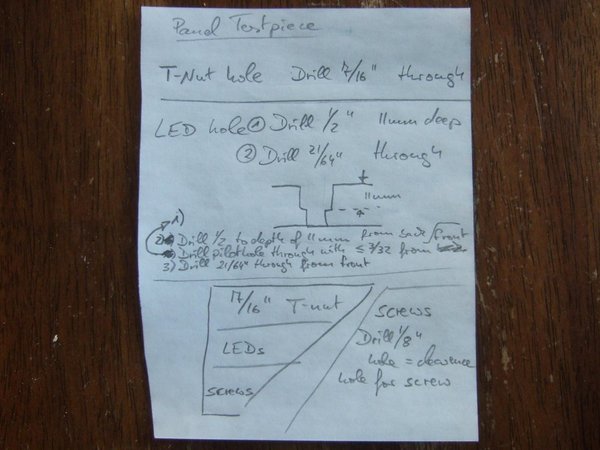 Panel Testpiece
T-Nut hole Drill 7/16" through
LED hole ① Drill 1/2" 11mm deep
② Drill 21/64" through
11mm
1)
2) Drill 1/2 to depth of 11mm from back
Drill pilothole through with ≤ 3/32 from front
3) Drill 21/64" through from front
7/16" T-nut
LEDs
SCREWS
SCREWS
Drill 1/8"
hole = clearence
hole for screw